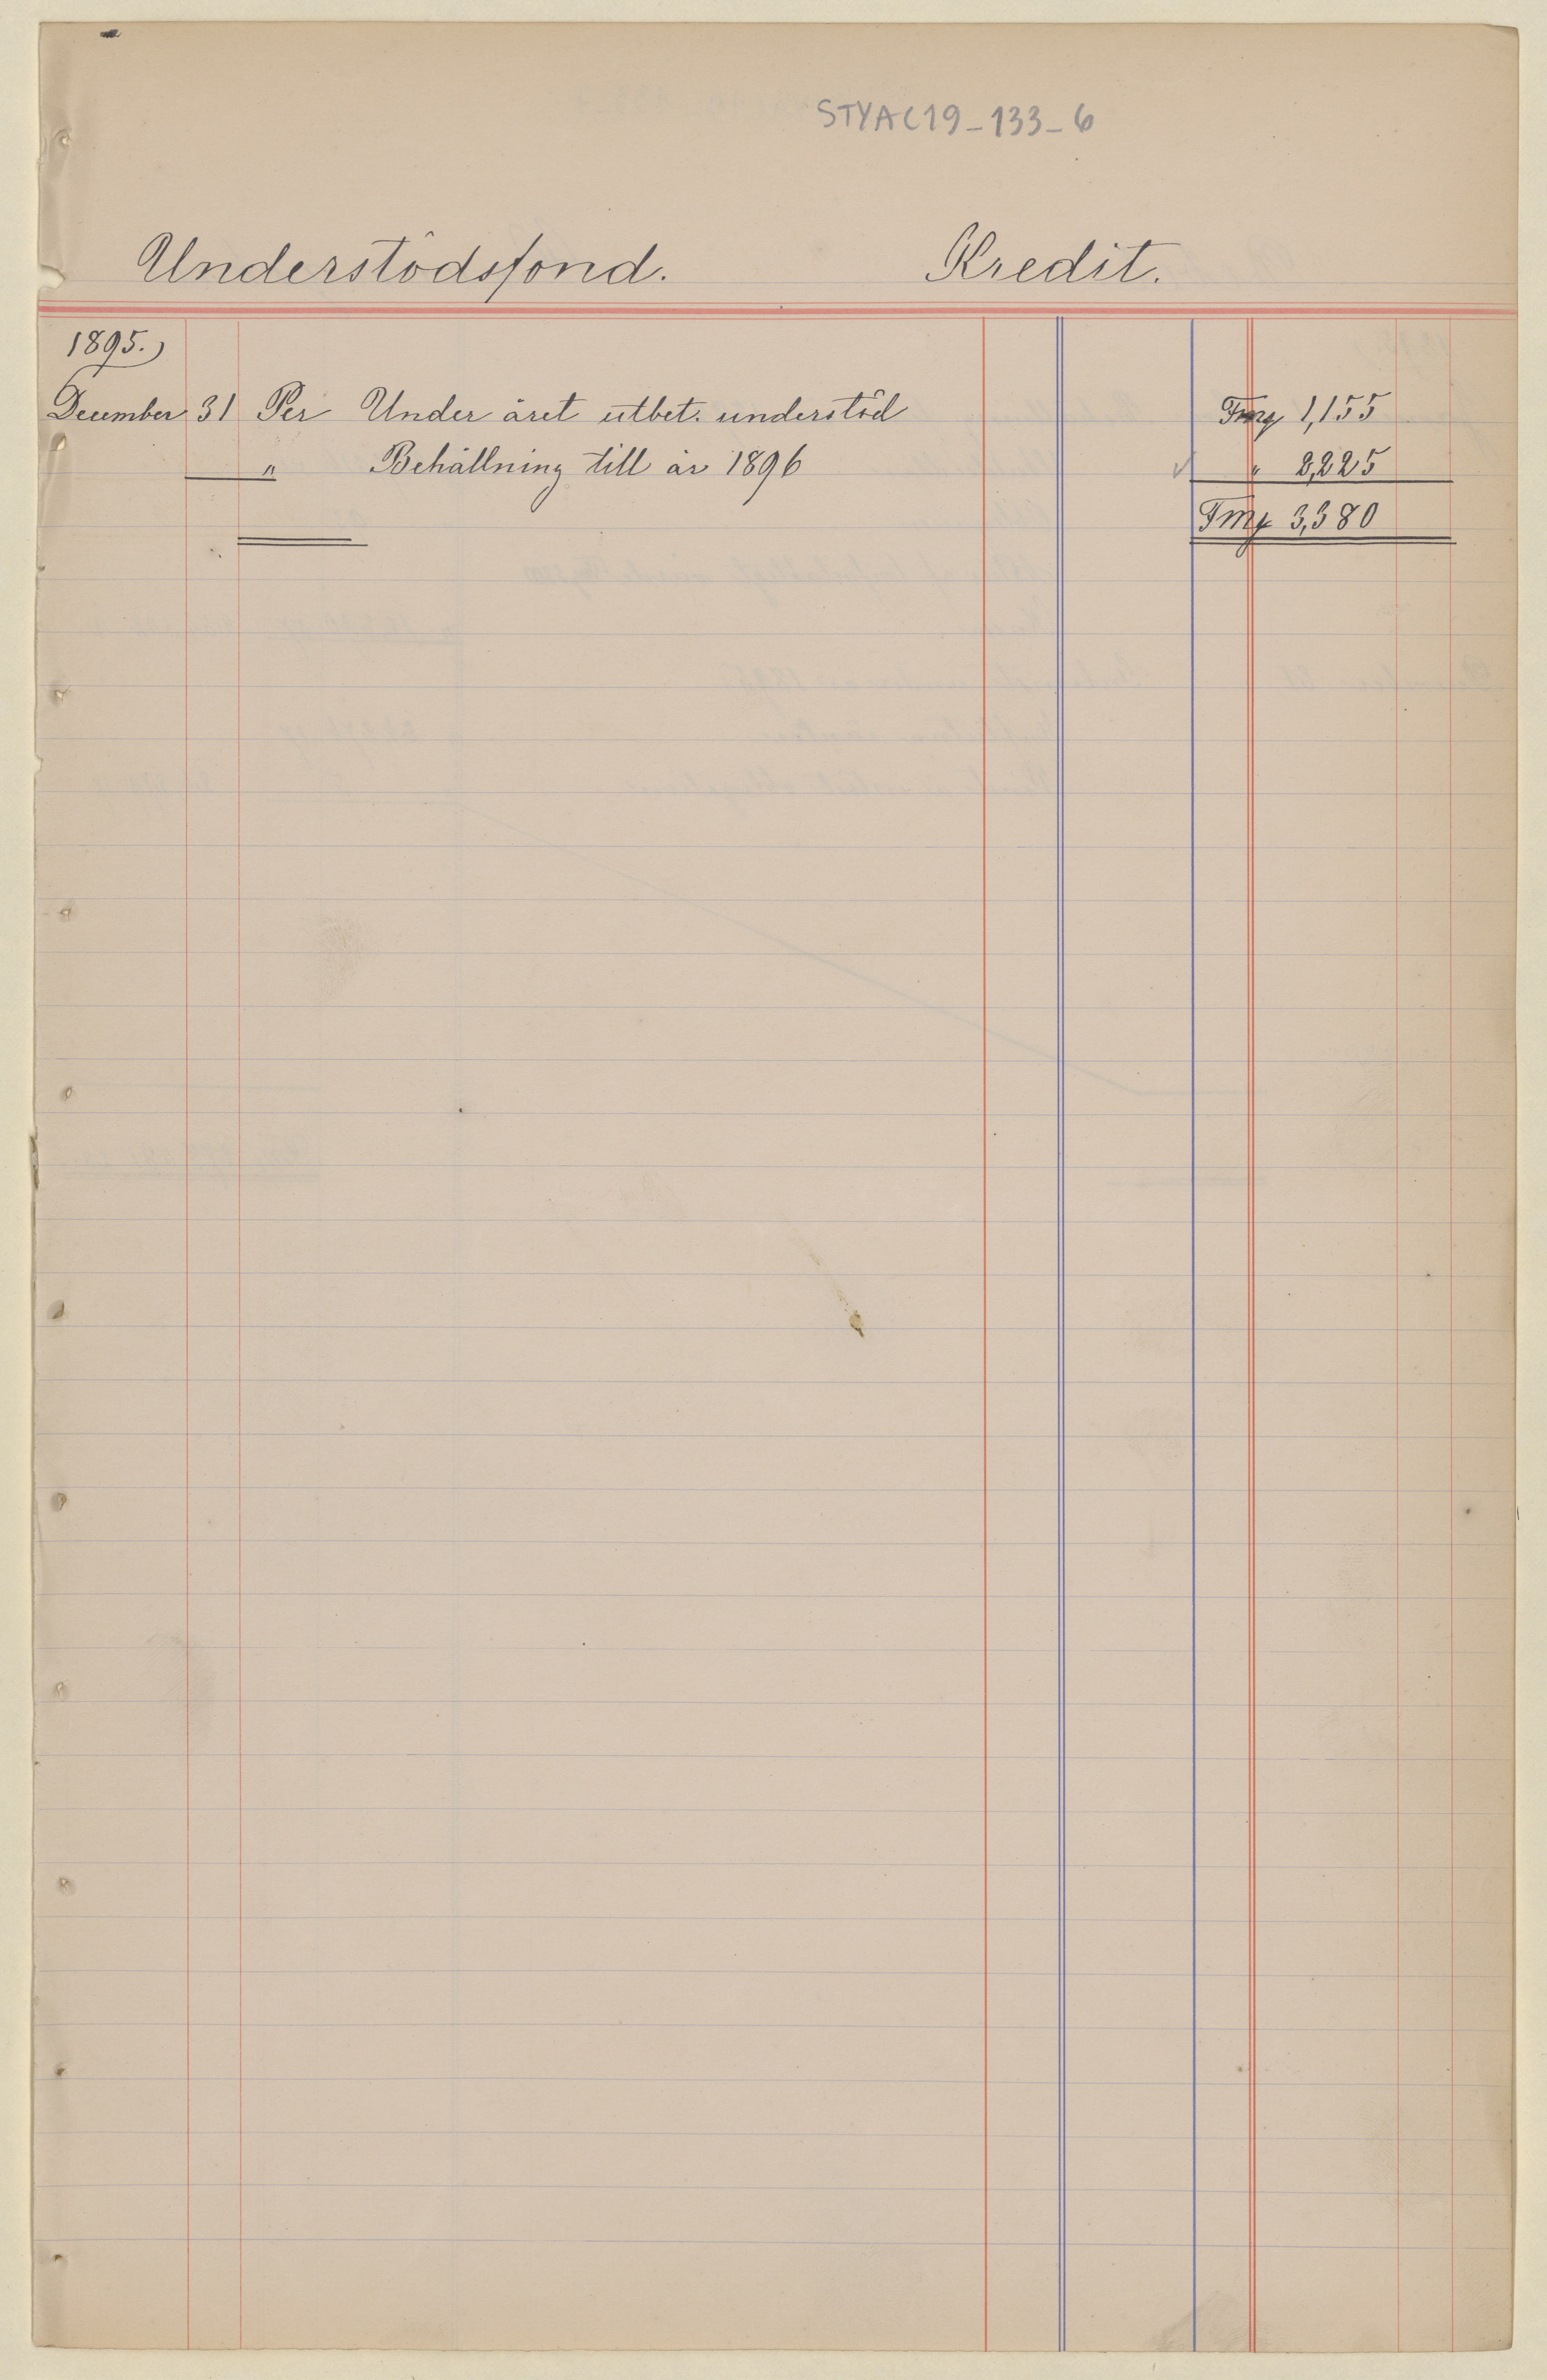 STYAC19_133_6
Understödsfond. Kredit.
1895.
December 31 Per Under året utbet. understöd Fmg 1,155
" Behållning till år 1896 " 2,225
Fmg 3,380